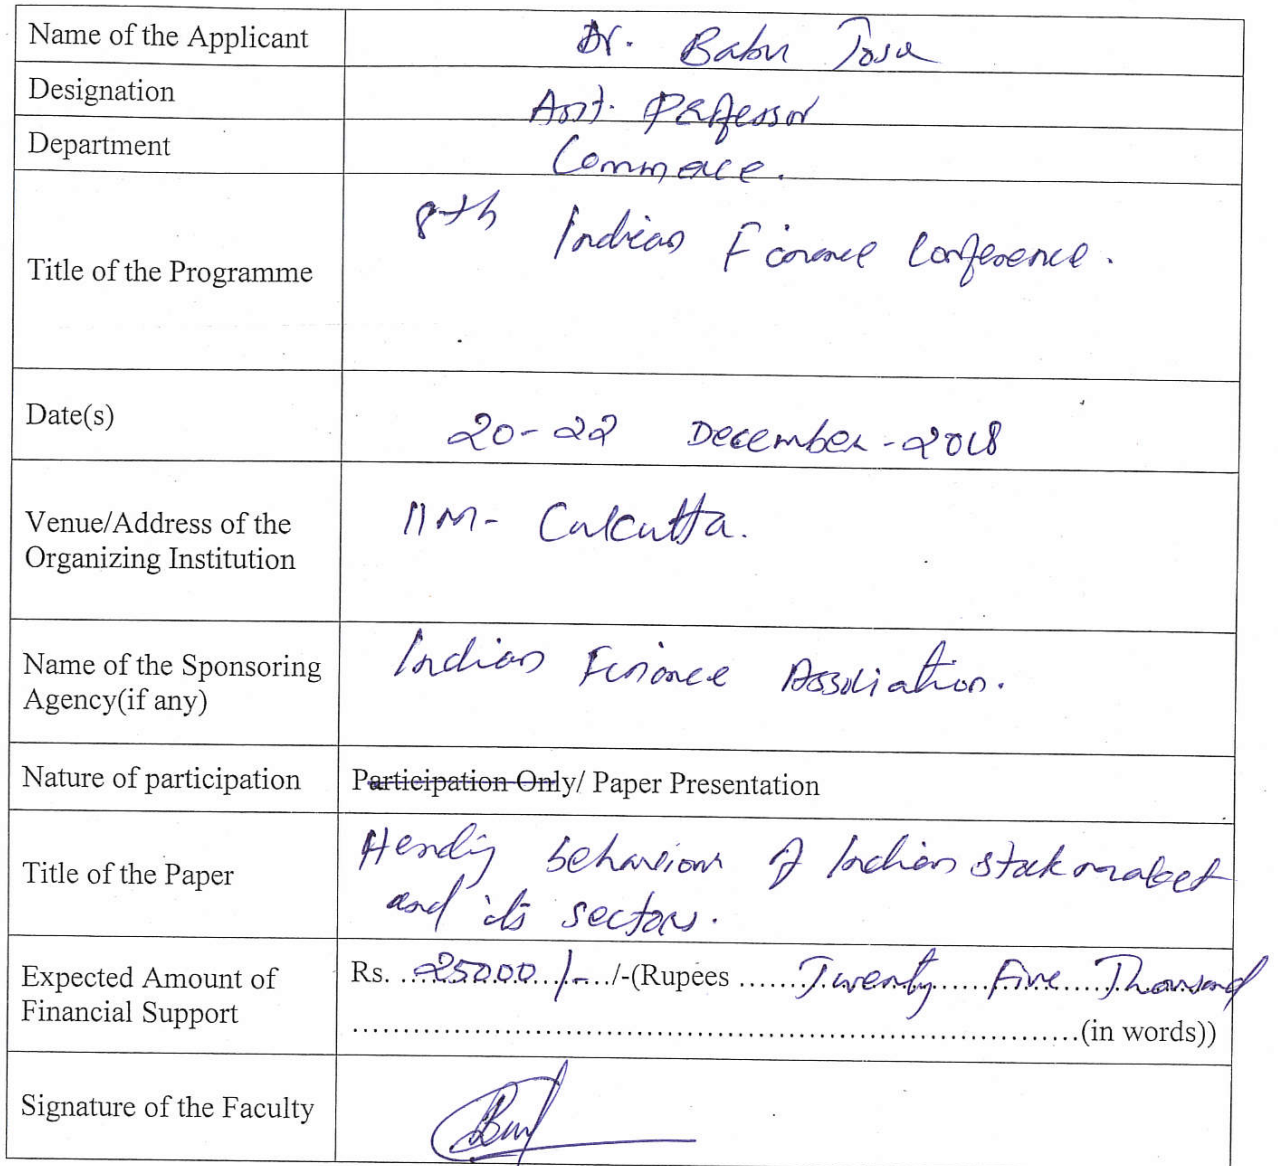 Name of the Applicant Dr. Babu Jose
Designation Asst. Professor
Department Commerce.
Title of the Programme 8th Indian Finance Conference.
Date(s) 20-22 December-2018
Venue/Address of the
Organizing Institution
IIM- Calcutta.
Name of the Sponsoring
Agency(if any)
Indian Finance Association.
Nature of participation Participation Only/ Paper Presentation
Title of the Paper
Herding behaviour of Indian stock market
and its sectors.
Expected Amount of
Financial Support
Rs. ..25000./-../-(Rupees ......Twenty Five Thousand
......(in words))
Signature of the Faculty